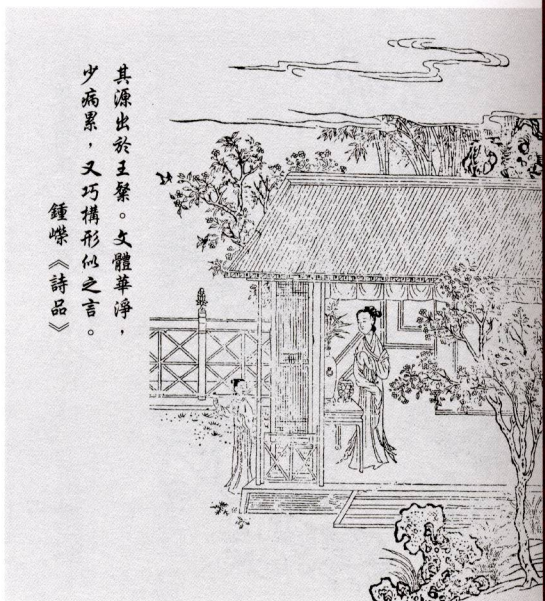 其源出於王粲。文體華淨，
少病累，又巧構形似之言。
鍾嶸《詩品》